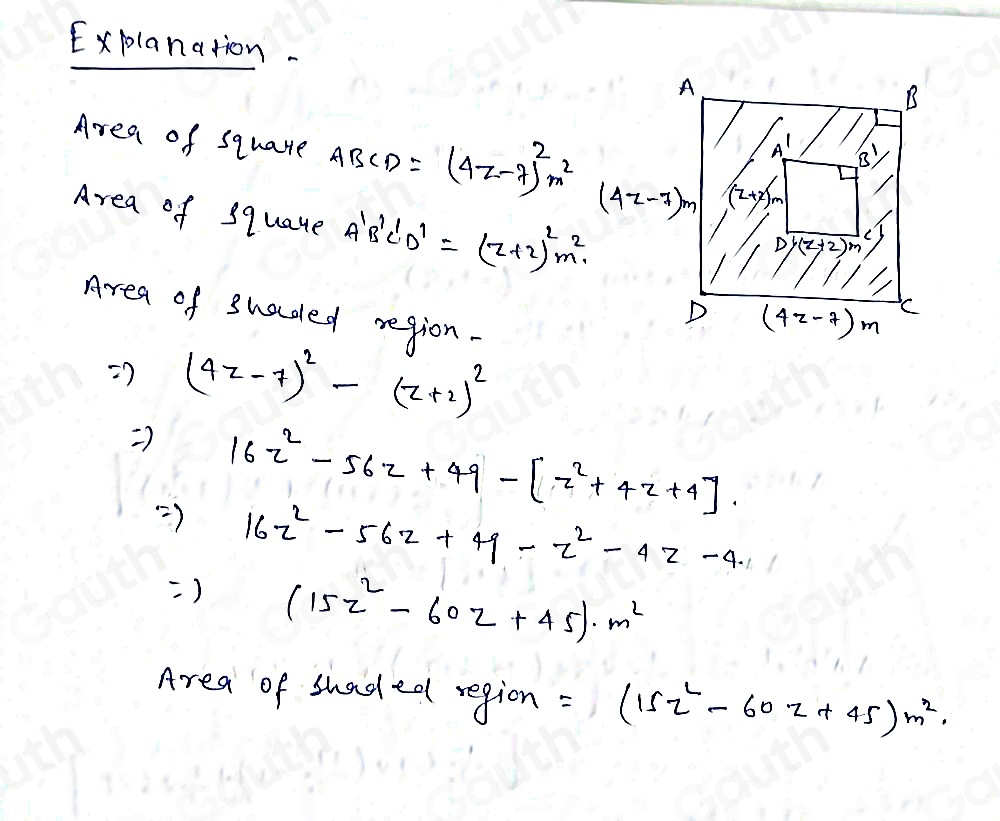 Explanation -
Area of square ABCD = (4z-7)² m²
Area of square A'B'C'D' = (z+2)² m².
Area of shaded region -
=) (4z-7)² - (z+2)²
=) 16z² - 56z + 49 - [z² + 4z + 4].
=) 16z² - 56z + 49 - z² - 4z - 4.
=) (15z² - 60z + 45). m²
Area of shaded region = (15z² - 60z + 45) m².
A
B
A'
B'
(4z-7)m
(z+2)m
D'
(z+2)m
C'
D
(4z-7)m
C
Gauth